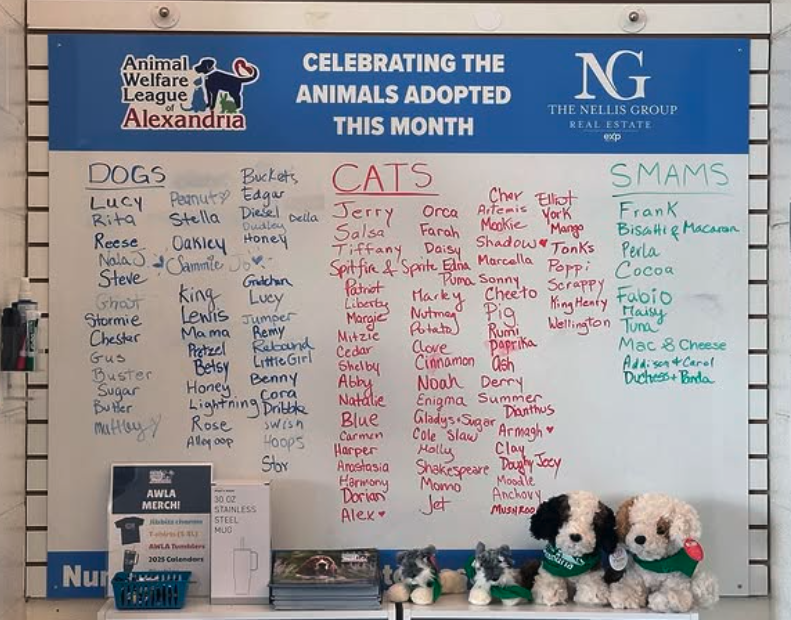 Animal
Welfare
League
of
Alexandria
CELEBRATING THE
ANIMALS ADOPTED
THIS MONTH
NG
THE NELLIS GROUP
REAL ESTATE
exp
DOGS
Lucy
Rita
Reese
Nala J
Steve
Ghost
Stormie
Chestar
Gus
Buster
Sugar
Butler
Muttley
Peanut
Stella
Oakley
Sammie Jo
King
Lewis
Mama
Pretzel
Betsy
Honey
Lightning
Rose
Alley oop
Buckets
Edgar
Diesel Della
Dudley
Honey
Gretchen
Lucy
Jumper
Remy
Rebound
Little Girl
Benny
Cora
Dribble
Swish
Hoops
Star
CATS
Jerry
Salsa
Tiffany
Spitfire & Sprite
Patriot
Liberty
Margie
Mitzie
Cedar
Shelby
Abby
Natalie
Blue
Carmen
Harper
Anastasia
Harmony
Dorian
Alex
Orca
Farah
Daisy
Edna
Puma
Marley
Nutmeg
Potato
Clove
Cinnamon
Noah
Enigma
Gladys + Sugar
Cole Slaw
Holly
Shakespeare
Momo
Jet
Cher
Artemis
Mookie
Shadow
Marcella
Sonny
Cheeto
Pig
Rumi
Paprika
Derry
Summer
Dianthus
Armagh
Clay
Doughy Joey
Moodle
Anchovy
MUSHROO
Elliot
York
Mango
Tonks
Poppi
Scrappy
King Henry
Wellington
SMAMS
Frank
Biscotti & Macaron
Perla
Cocoa
Fabio
Maisy
Tuna
Mac & Cheese
Addison + Carol
Duchess + Panda
AWLA
MERCH!
Jibbitz charms
T-shirts (S-XL)
AWLA Tumblers
2025 Calendars
30 OZ
STAINLESS
STEEL
MUG